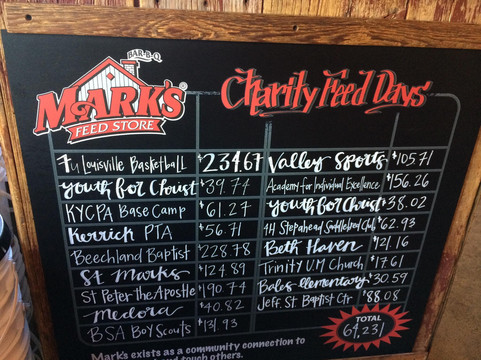 BAR-B-Q
MARK'S®
FEED STORE
Charity Feed Days
7u Louisville Basketball $234.67
Youth for Christ $39.74
KYCPA Base Camp $61.27
Kerrick PTA $56.71
Beechland Baptist $228.78
St Marks $124.89
St Peter the Apostle $190.74
Medora $40.82
BSA Boy Scouts $131.93
Valley Sports $105.71
Academy for Individual Excellence $156.26
Youth for Christ $38.02
4H Stepahead Saddlebred Club $62.93
Beth Haven $121.16
Trinity U.M Church $17.61
Bales elementary $30.59
Jeff. St Baptist Ctr $88.08
TOTAL
64,231
Mark's exists as a community connection to
and touch others.